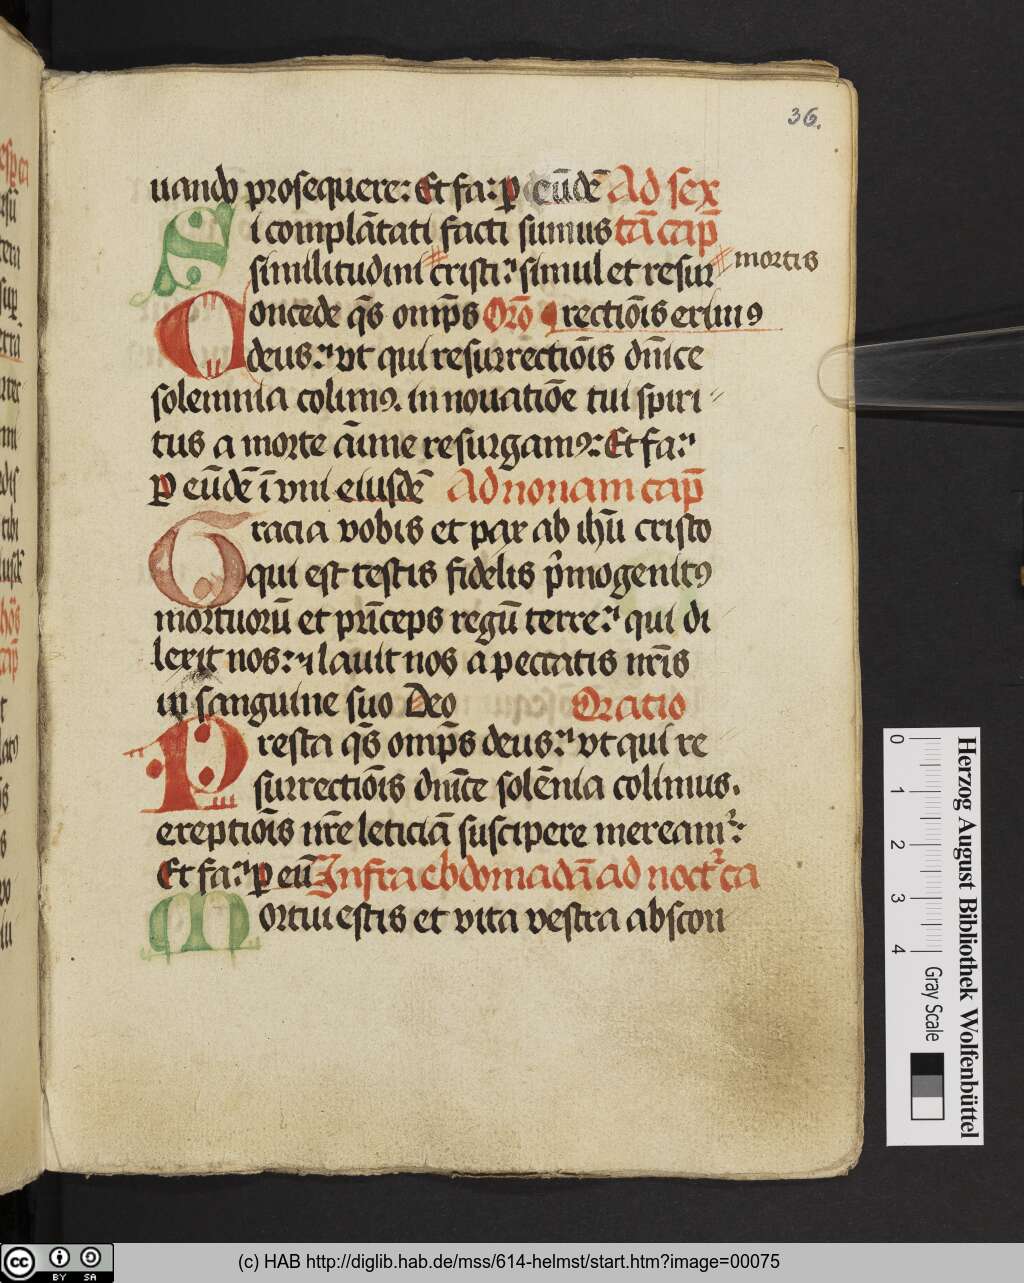 36.
uando prosequere: Et fa: p eūdē Ad sex
Si complātati facti sumus tā cap̄
similitudini cristi: simul et resur mortis
Concede qs̄ omp̄s Orō rectiōis erimꝰ
deus: ut qui resurrectiōis dn̄ice
solemnia colimꝰ. in nouatiōe tui spiri
tus a morte aīme resurgamꝰ: Et fa:
p eūdē ī vni eiusdē Ad nonam cap̄
Gracia vobis et pax ab ihū cristo
qui est testis fidelis pͥmogenitꝰ
mortuorū et prīceps regū terre: qui di
lexit nos: ⁊ lauit nos a peccatis nr̄is
in sanguine suo Deo Oratio
Presta qs̄ omp̄s deus: vt qui re
surrectiōis dn̄ice solēnia colimus.
ereptiōis nr̄e leticiā suscipere meream:
Et fa: p eū Infra ebdomadā ad noct ca
Mortui estis et vita vestra abscon
Herzog August Bibliothek Wolfenbüttel
0 1 2 3 4
Gray Scale
cc BY SA
(c) HAB http://diglib.hab.de/mss/614-helmst/start.htm?image=00075